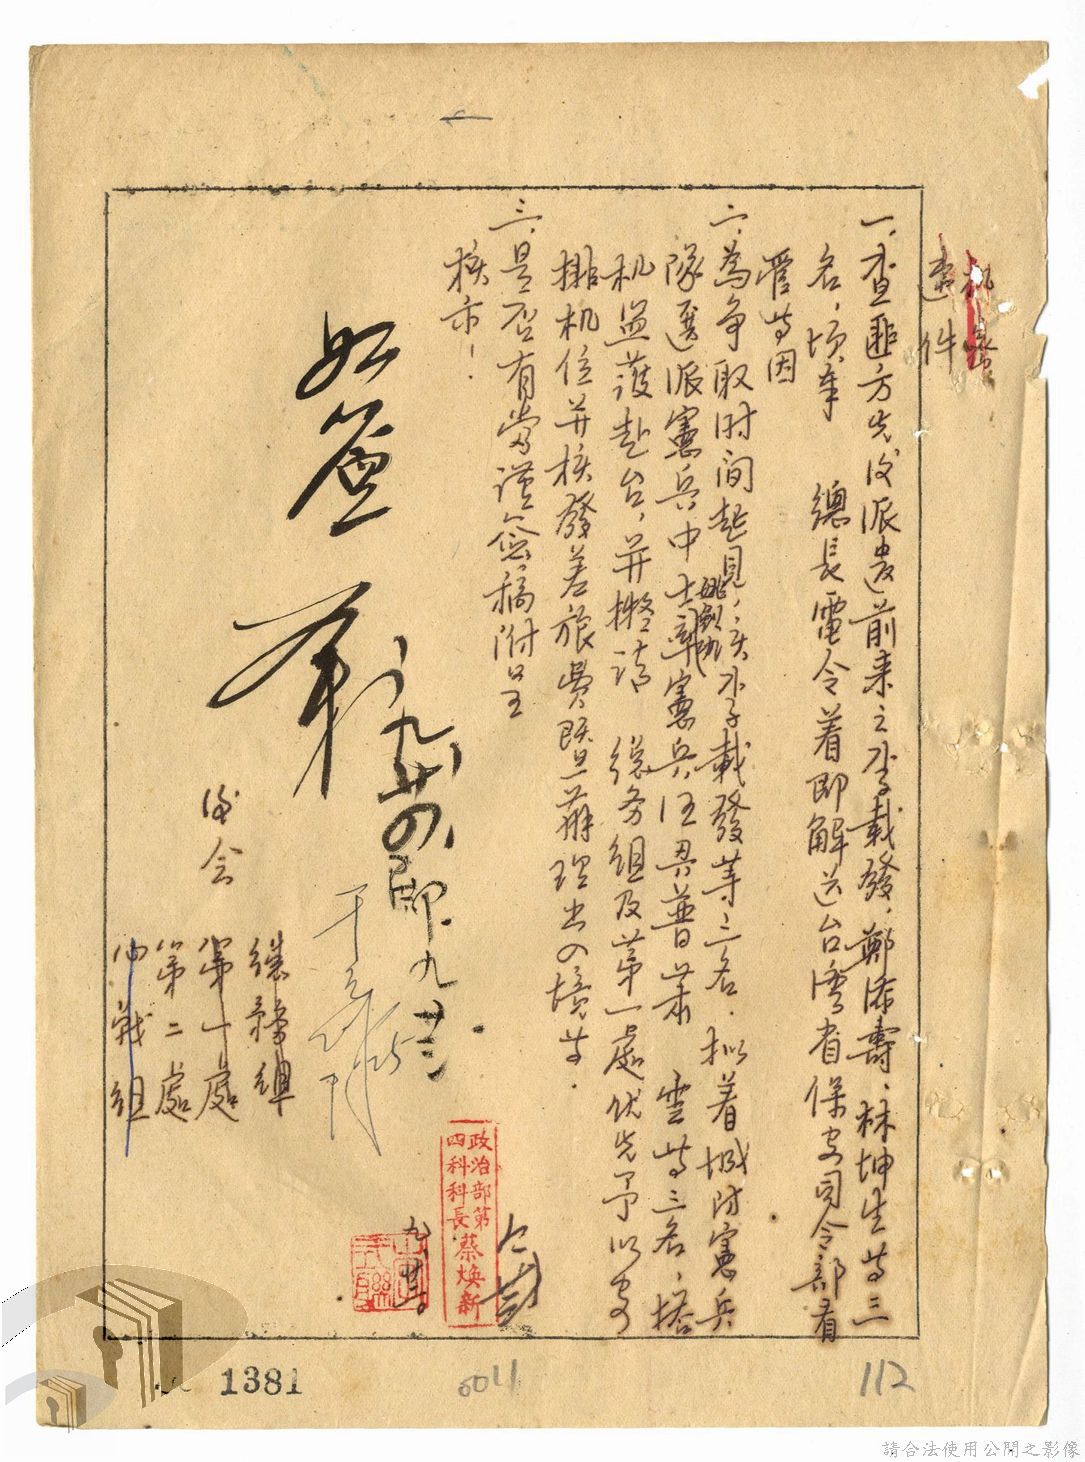 机密
速件
一、查匪方先後派遣前来之李載發、鄭添壽、林坤生等三
名，頃奉　總長電令着即解送台湾省保安司令部看
管等因
二、為争取时间起見，該李載發等三名，拟着城防憲兵
隊選派憲兵中士 憲兵汪昇普 萧雲等三名，搭
机监護赴台，并擬請　總务組及第一處优先予以安
排机位并核發差旅費既 辦理出入境等．
三、是否有當谨簽稿附呈
核示！
如簽
九廿四
九廿三
後会
總務組
第一處
第二處
心戰組
政治部第
四科科長蔡煥新
1381
0011
112
請合法使用公開之影像